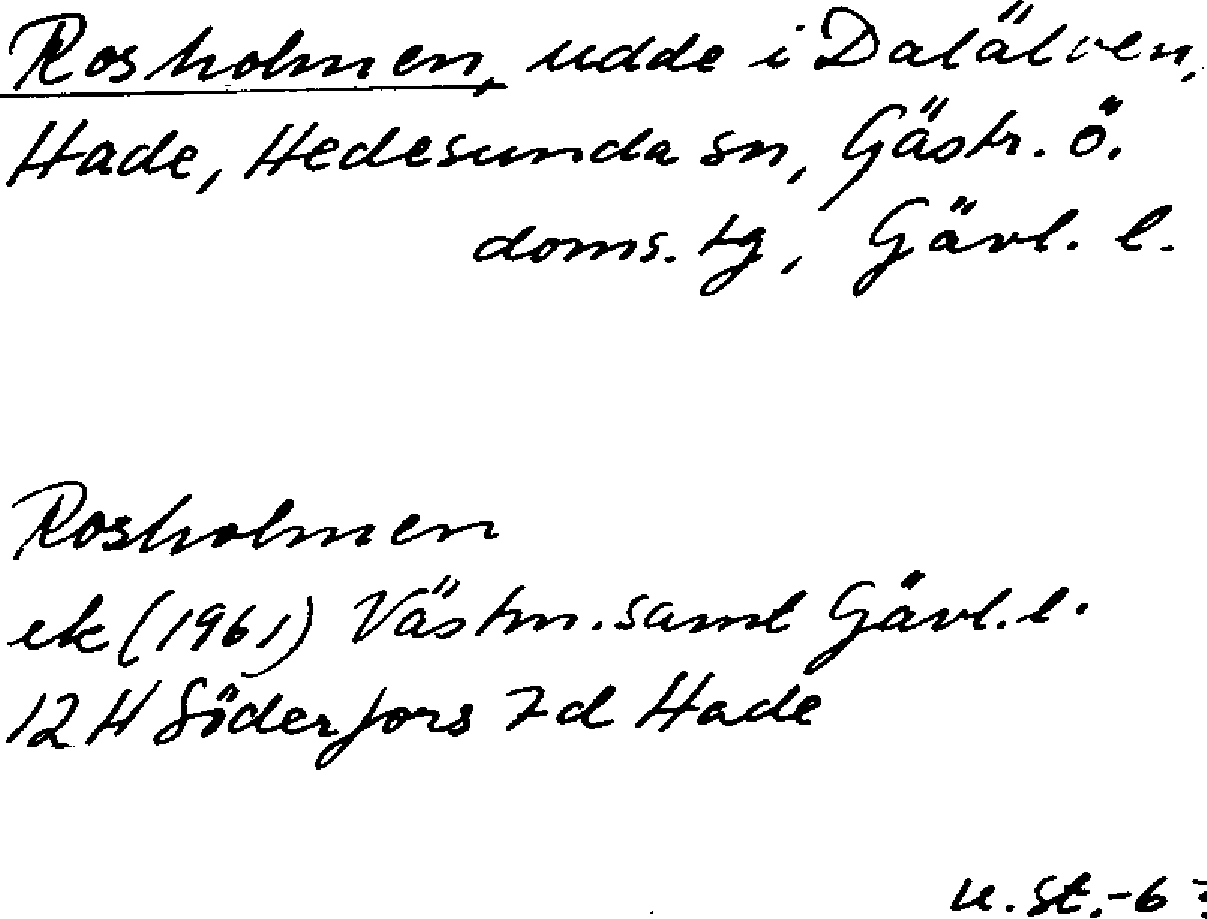 Rosholmen, udde i Dalälven,
Hade, Hedesunda sn, Gästr. ö.
doms. tg, Gävl. l.
Rosholmen
ek (1961) Västm. samt Gävl. l.
12 H Söderfors 7d Hade
u. St.-6